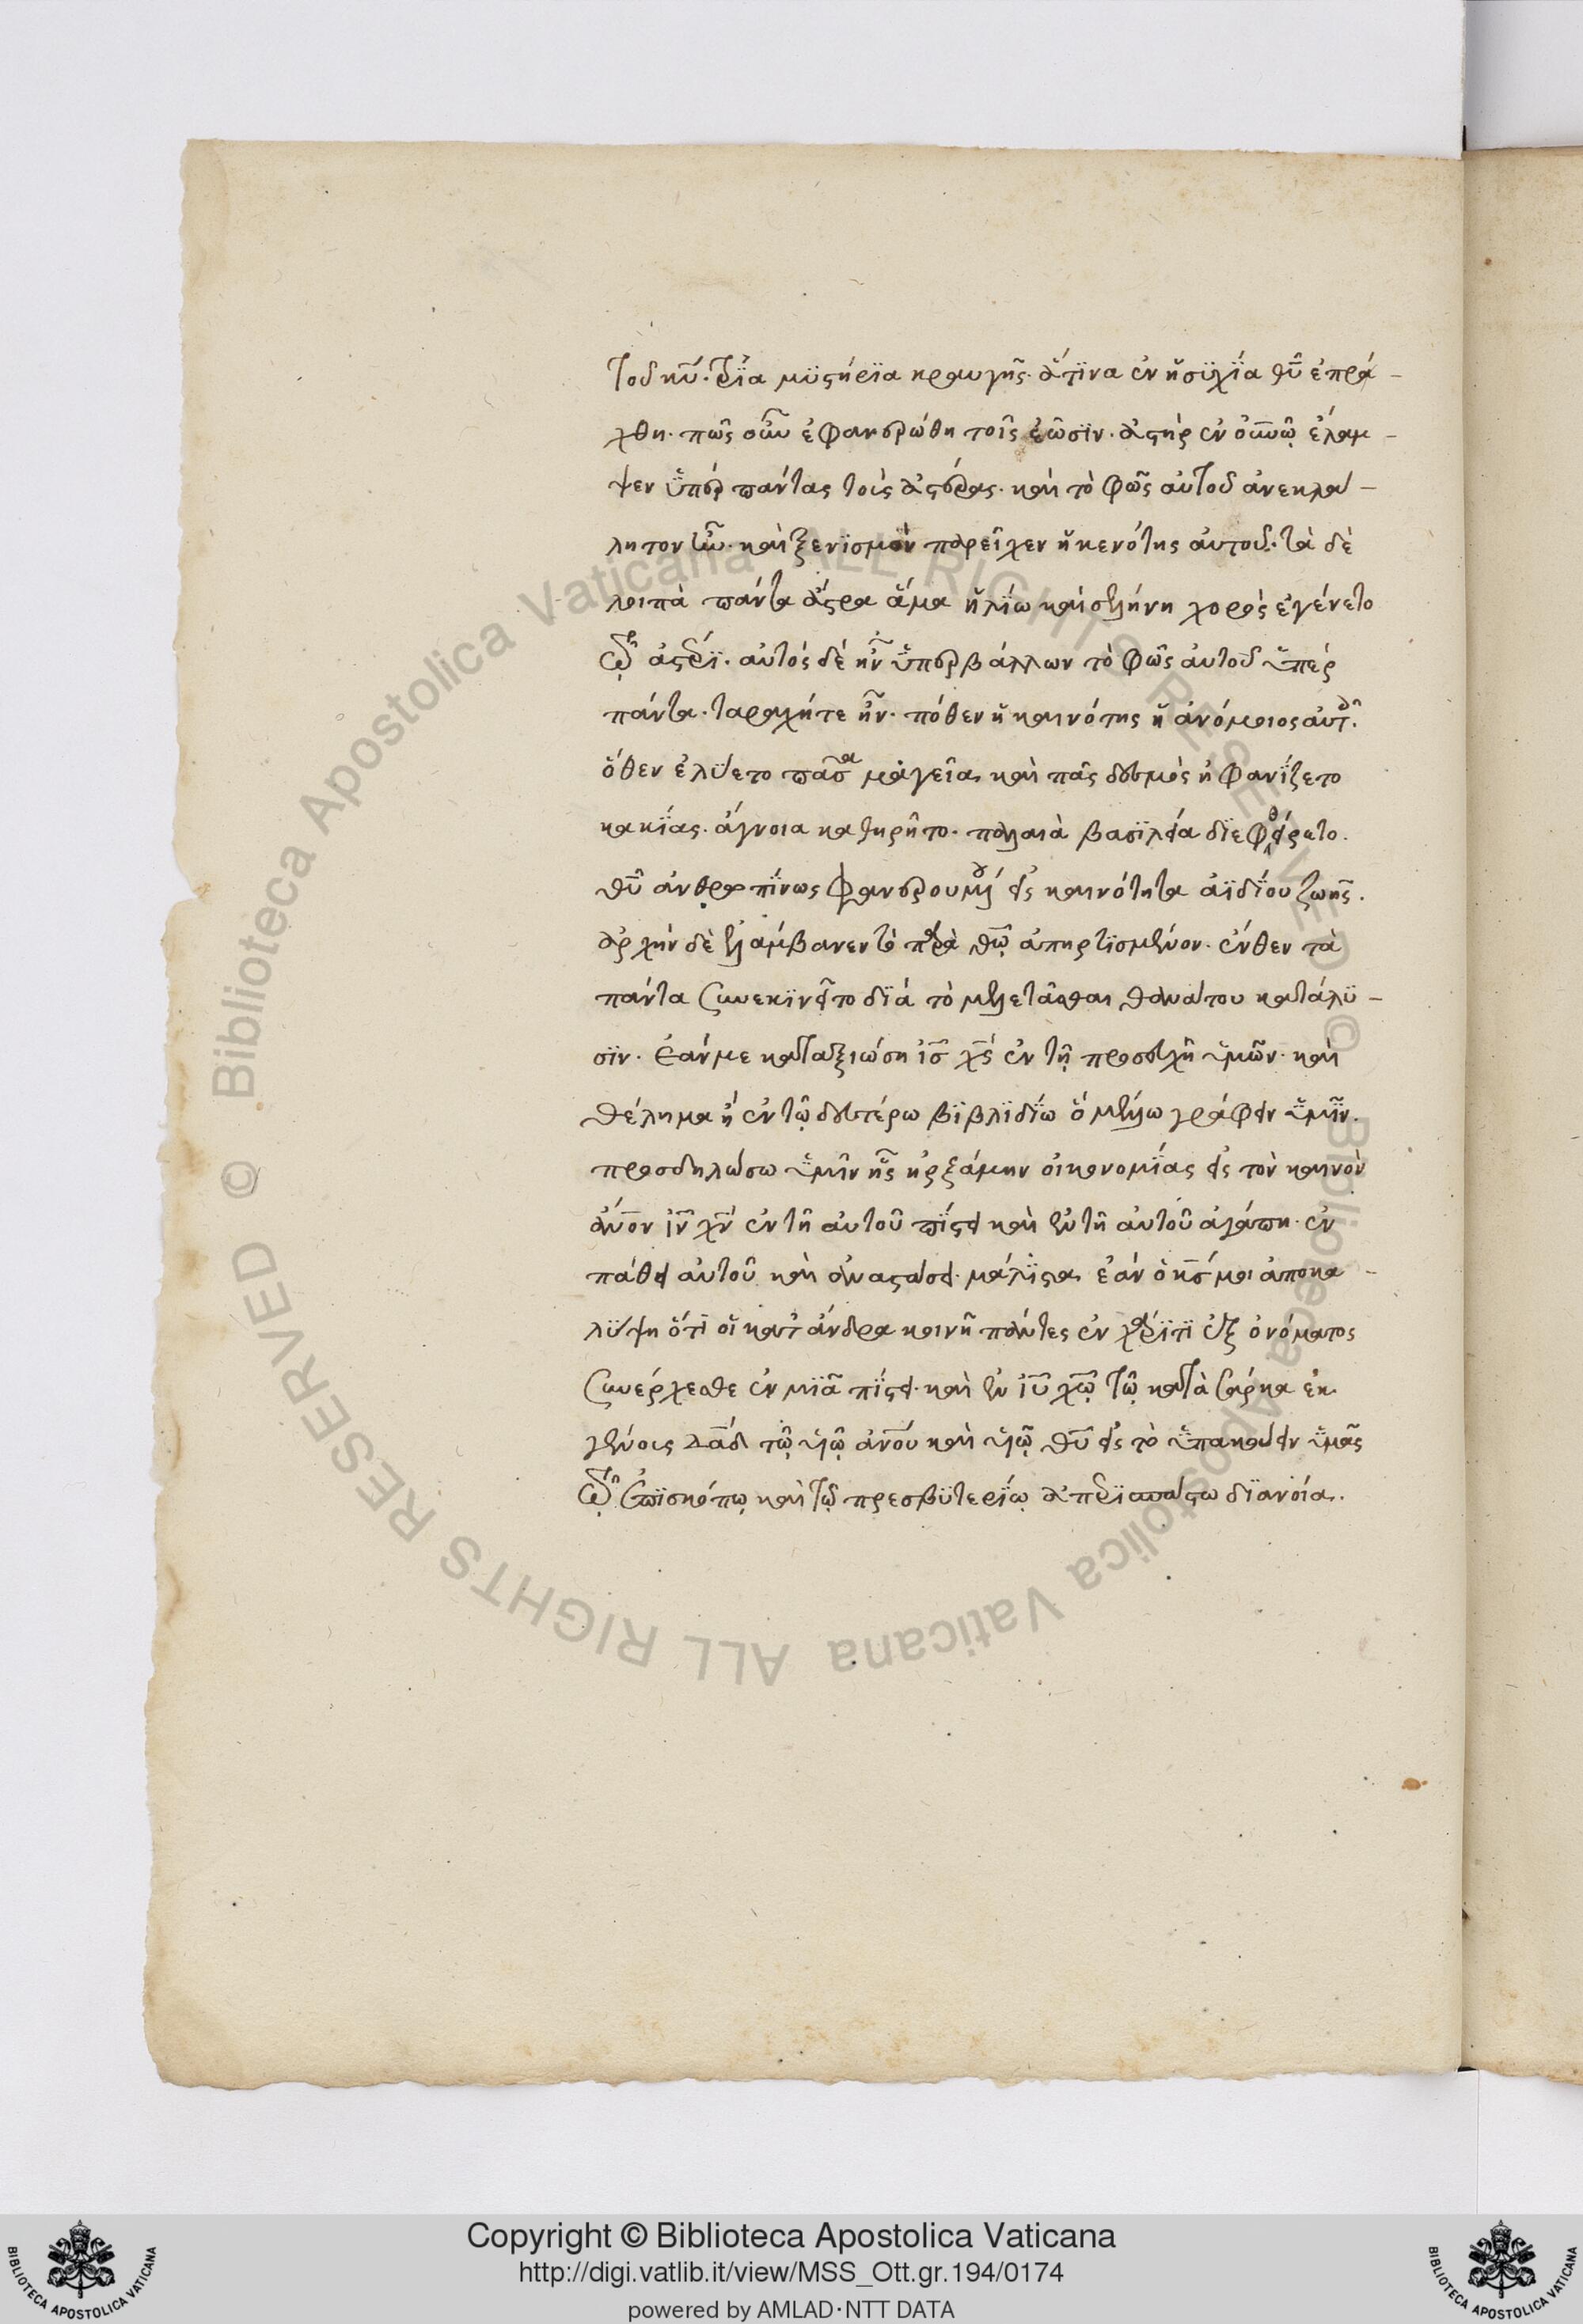 τοῦ κ̅υ̅· τρία μυστήρια κραυγῆς· ἅτινα ἐν ἡσυχία θ̅υ̅ ἐπρά-
χθη· πῶς οὖν ἐφανερώθη τοῖς ἐῶσιν· ἀστὴρ ἐν ο̅υ̅ν̅ῶ̣ ἔλαμ-
ψεν ὑπὲρ πάντας τοὺς ἀστέρας· καὶ τὸ φῶς αὐτοῦ ἀνεκλά-
λητον ἦν· καὶ ξενισμὸν παρεῖχεν ἡ κενότης αὐτοῦ· τὰ δὲ
λοιπὰ πάντα ἄστρα ἅμα ἡλίω καὶ σελήνη χορὸς ἐγένετο
τῶ̣ ἀστέρι· αὐτὸς δὲ ἦν ὑπερβάλλων τὸ φῶς αὐτοῦ ὑπὲρ
πάντα· ταραχή τε ἦν· πόθεν ἡ καινότης ἡ ἀνόμοιος αὐτοῖς·
ὅθεν ἐλύετο πᾶσα μαγεία, καὶ πᾶς δεσμὸς ἠφανίζετο
κακίας· ἄγνοια καθηρῆτο· παλαιὰ βασιλεία διεφθείρετο·
θ̅υ̅ ἀνθρωπίνως φανερουμένου εἰς καινότητα ἀϊδίου ζωῆς·
ἀρχὴν δὲ ἐλάμβανεν τὸ παρὰ θ̅ῶ̣ ἀπηρτισμένον· ἔνθεν τὰ
πάντα συνεκινεῖτο διὰ τὸ μελετᾶσθαι θανάτου κατάλυ-
σιν· ἐάν με καταξιώση ι̅σ̅ χ̅ς̅ ἐν τῆ̣ προσευχῆ ὑμῶν· καὶ
θέλημα ἦ ἐν τῶ̣ δευτέρω βιβλιδίω ὃ μέλλω γράφειν ὑμῖν·
προσδηλώσω ὑμῖν ἧς ἠρξάμην οἰκονομίας εἰς τὸν καινὸν
ἄ̅ν̅ο̅ν ι̅ν̅ χ̅ν̅ ἐν τῆ αὐτοῦ πίστει καὶ ἐν τῆ αὐτοῦ ἀγάπη· ἐν
πάθει αὐτοῦ καὶ ἀναστάσει· μάλιστα, ἐὰν ὁ κ̅σ̅ μοι ἀποκα-
λύψη ὅτι οἱ κατ' ἄνδρα κοινῆ πάντες ἐν χάριτι ἐξ ὀνόματος
συνέρχεσθε ἐν μιᾶ πίστει· καὶ ἐν ι̅υ̅ χ̅ῶ̣ τῶ̣ κατὰ σάρκα ἐκ
γένους δ̅α̅δ̅ τῶ̣ υἱῶ̣ ἀ̅ν̅ο̅υ καὶ υἱῶ̣ θ̅υ̅ εἰς τὸ ὑπακούειν ὑμᾶς
τῶ̣ ἐπισκόπω̣ καὶ τῶ̣ πρεσβυτερίω̣ ἀπερισπάστω διανοία.
Copyright © Biblioteca Apostolica Vaticana
http://digi.vatlib.it/view/MSS_Ott.gr.194/0174
powered by AMLAD·NTT DATA
Biblioteca Apostolica Vaticana ALL RIGHTS RESERVED © Biblioteca Apostolica Vaticana ALL RIGHTS RESERVED ©
BIBLIOTECA APOSTOLICA VATICANA
BIBLIOTECA APOSTOLICA VATICANA